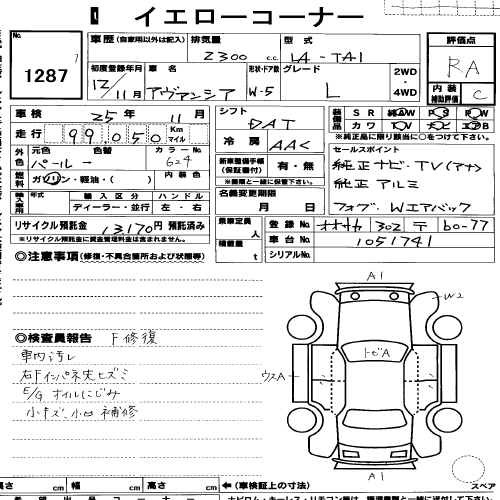 イエローコーナー
No. 1287
車歴 (自家用以外は記入) 排気量 2300 c.c. 型式 LA-TA1
初度登録年月 12/11月 車名 アヴァンシア 形状・ドア数 W-5 グレード L 2WD・4WD
評価点 RA
内装補助評価 C
車検 25年 11月
走行 99050 Km マイル
外色 元色 パール 色替 カラーNo. 624
燃料 ガソリン・軽油・( ) 内装色
輸入車用 年式 輸入区分 ディーラー・並行 ハンドル 左・右
リサイクル預託金 13170円 預託済み
※リサイクル預託金に資金管理料金は含まれません。
シフト DAT
冷房 AAC
新車整備手帳(保証書付) 有・無
※書類と一緒に保管下さい。
名義変更期限 月 日
装備品 SR AW PS PW
カワ TV ナビ エアB
※純正品に限り該当に○をつけて下さい。
セールスポイント
純正ナビ・TV(アナ)
純正アルミ
フォグ・Wエアバック
乗車定員 人
積載量 t
登録No. オオサカ 302 〒 60-77
車台No. 1051741
シリアルNo.
◎注意事項(修復・不具合箇所および状態等)
◎検査員報告 F修復
車内汚レ
右Fインパネ先ヒズミ
E/Gオイルにじみ
小キズ、小凹 補修
A1
W2
トビA
ウスA
A1
スペア
長さ cm 幅 cm 高さ cm ←(車検証上の寸法)